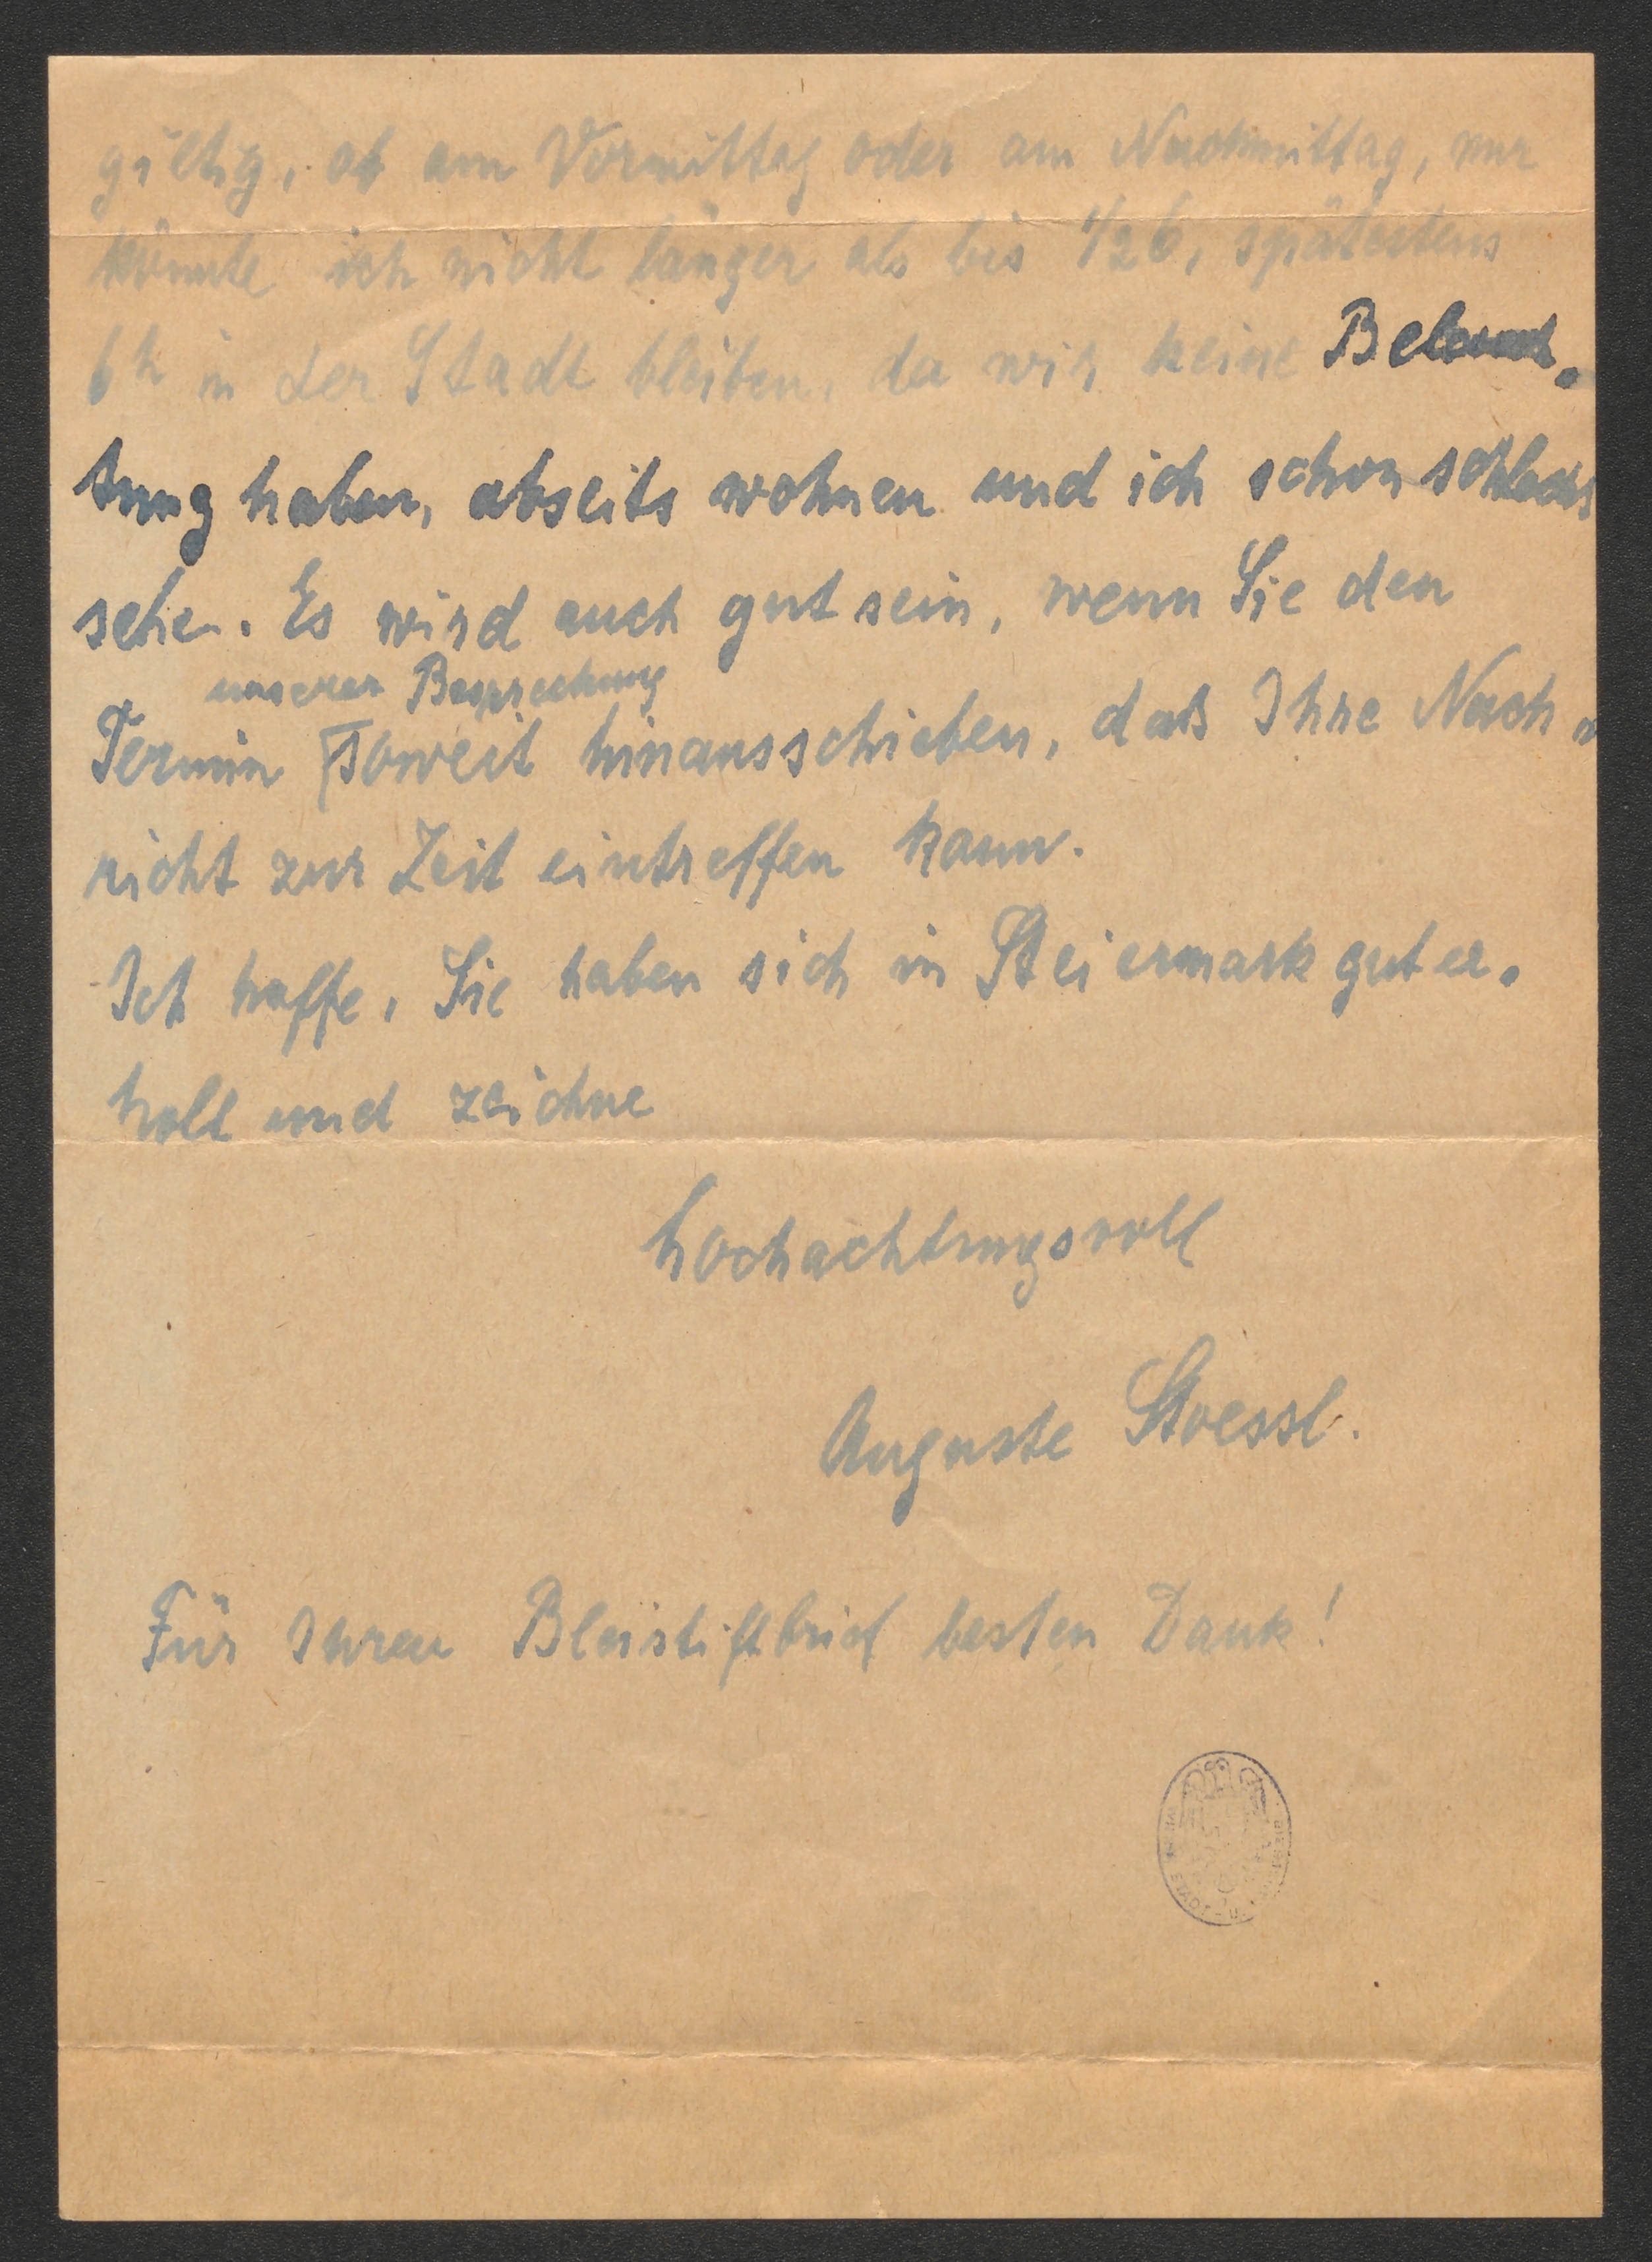 giltig, ob am Vormittag oder am Nachmittag, nur
könnte ich nicht länger als bis 1/2 6, spätestens
6h in der Stadt bleiben, da wir keine Beleuch-
tung haben, abseits wohnen und ich schon schlecht
sehe. Es wird auch gut sein, wenn Sie den
unserer Besprechung
Termin soweit hinausschieben, daß Ihre Nach-
richt zur Zeit eintreffen kann.
Ich hoffe, Sie haben sich in Steiermark gut er-
holt und zeichne
hochachtungsvoll
Auguste Stoessl.
Für Ihren Bleistiftbrief besten Dank!
STADT-U.